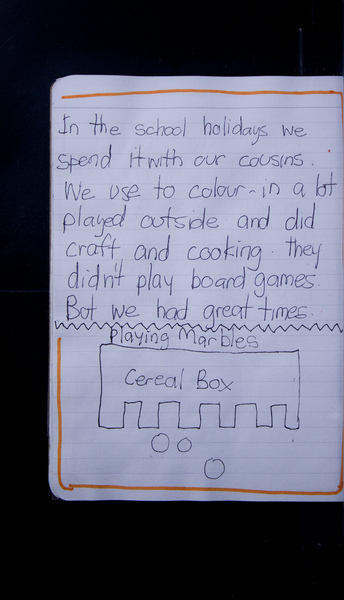 In the school holidays we
spend it with our cousins.
We use to colour-in a lot
played outside and did
craft, and cooking. they
didn't play board games.
Bot we had great times.
Playing Marbles
Cereal Box